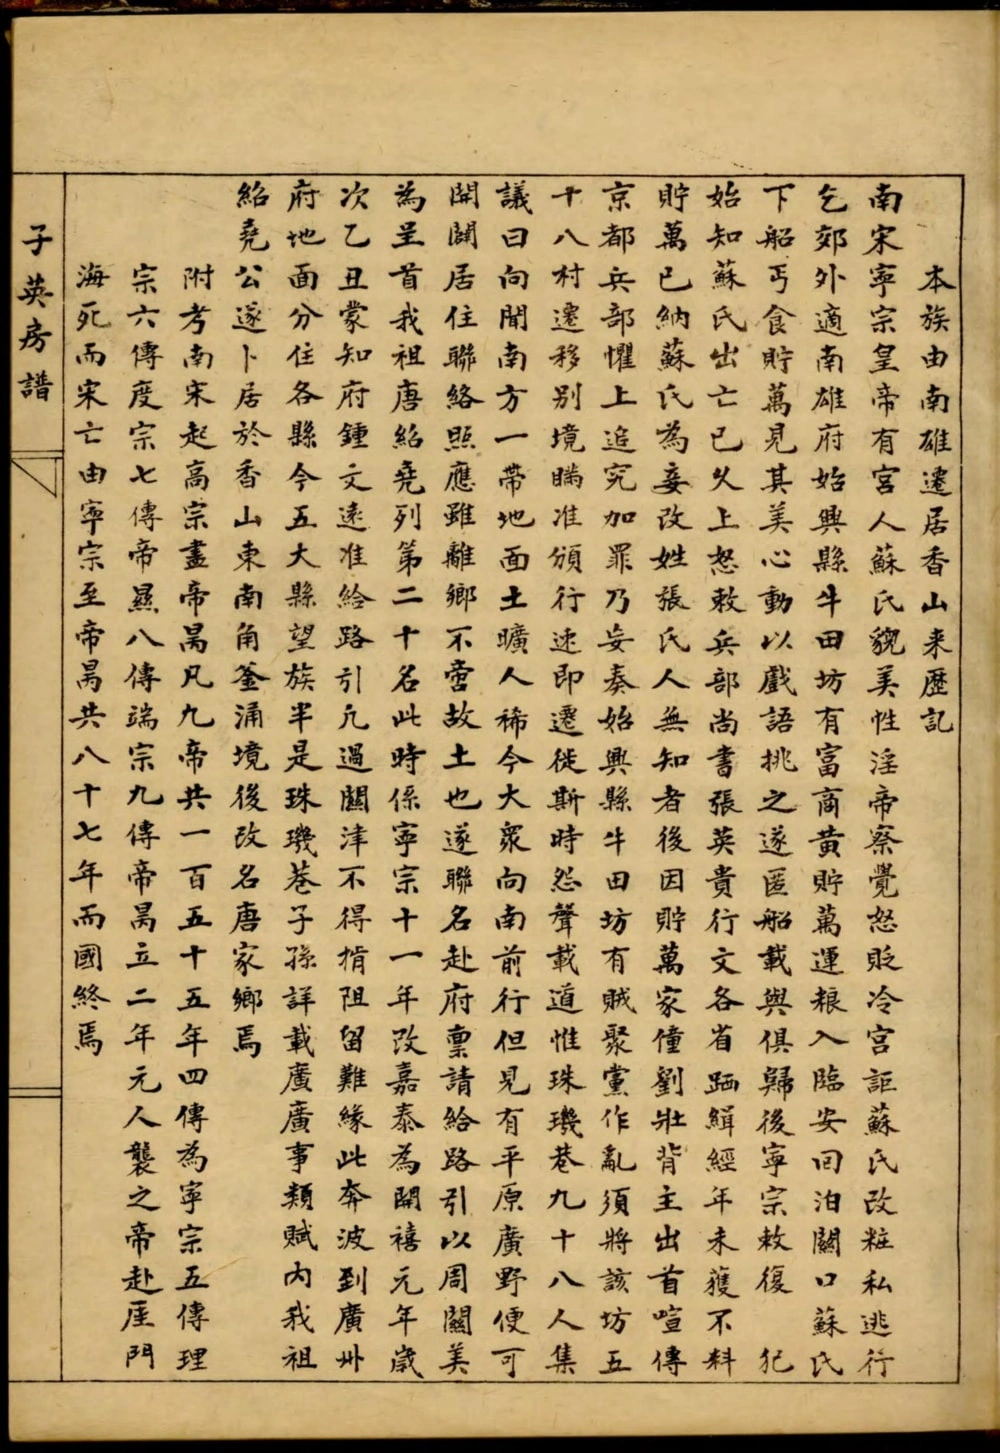 本族由南雄遷居香山来歴記
南宋寧宗皇帝有宮人蘇氏貌美性淫帝察覺怒貶冷宮詎蘇氏改粧私逃行
乞郊外適南雄府始興縣牛田坊有富商黄貯萬運粮入臨安回泊關口蘇氏
下船丐食貯萬見其美心動以戲語挑之遂匿船載與俱歸後寧宗敕復 犯
始知蘇氏出亡已久上怒敕兵部尚書張英貴行文各省跴緝經年未獲不料
貯萬已納蘇氏為妾改姓張氏人無知者後因貯萬家僮劉壯背主出首喧傳
京都兵部懼上追究加罪乃妄奏始興縣牛田坊有賊聚黨作亂須將該坊五
十八村遷移别境瞞准頒行速即遷徙斯時怨聲載道惟珠璣巷九十八人集
議曰向聞南方一帶地面土曠人稀今大衆向南前行但見有平原廣野便可
開闢居住聯絡照應雖離鄉不啻故土也遂聯名赴府禀請給路引以周關美
為呈首我祖唐紹堯列第二十名此時係寧宗十一年改嘉泰為開禧元年歲
次乙丑蒙知府鍾文遠准給路引凢過關津不得揹阻留難緣此奔波到廣州
府地面分住各縣今五大縣望族半是珠璣巷子孫詳載廣廣事類賦内我祖
紹堯公遂卜居於香山東南角釜涌境後改名唐家鄉焉
附考南宋起高宗盡帝昺凡九帝共一百五十五年四傳為寧宗五傳理
宗六傳度宗七傳帝㬎八傳端宗九傳帝昺立二年元人襲之帝赴厓門
海死而宋亡由寧宗至帝昺共八十七年而國終焉
子英房譜